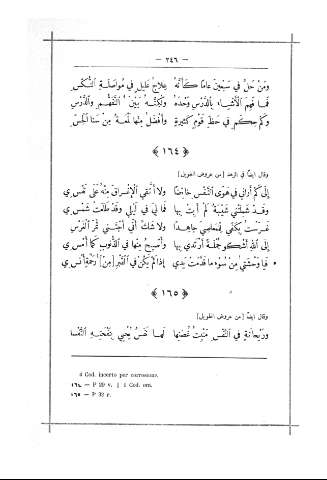 — ٢٤٦ —
ومَن حلَّ في سبعين عامًا كأنَّه علاجُ عليلٍ في مواصلة النُّكْسِ
فما فهِمَ الأشياءَ بالدَّرس وحْدَهُ ولكنَّه بين التَّفَهُّم والدَّرسِ
وكم حكمٍ في خطِّ قومٍ كثيرةٍ وأفضلُ منها لمعةٌ من سنا الحِسِّ
﴿ ١٦٤ ﴾
وقال ايضًا في الزهد [من عروض الطويل]
إلى كم أراني في هوَى النَّفْس خائضًا ولا أتَّقي الإغراقَ منه على نفسي
وقد شملتني شيبةٌ لم أبِتْ بها فما ليَ في ليلي وقد طلعتْ شمسي
غرستُ بكفّي المعاصي جاهدًا ولا شكَّ أنّي أجتني ثمرَ الغرسِ
إلى الله أشكو جُملةً أرتدي بها وأُصبحُ منها في الذنوب كما أُمسي
• فيا وحشتي من سُوءِ ما قدَّمتْ يدي إذا لم يكن في القبرِ [من] رحمةٍ أُنسي
﴿ ١٦٥ ﴾
وقال ايضًا [من عروض الطويل]
وريحانةٍ في النَّفْس منبتُ غُصنِها لها نفَسٌ يُحيي بنفحتِهِ النَّفْسا
4 Cod. incerto per corrosione.
١٦٤ — P 29 v. | 1 Cod. om.
١٦٥ — P 32 r.